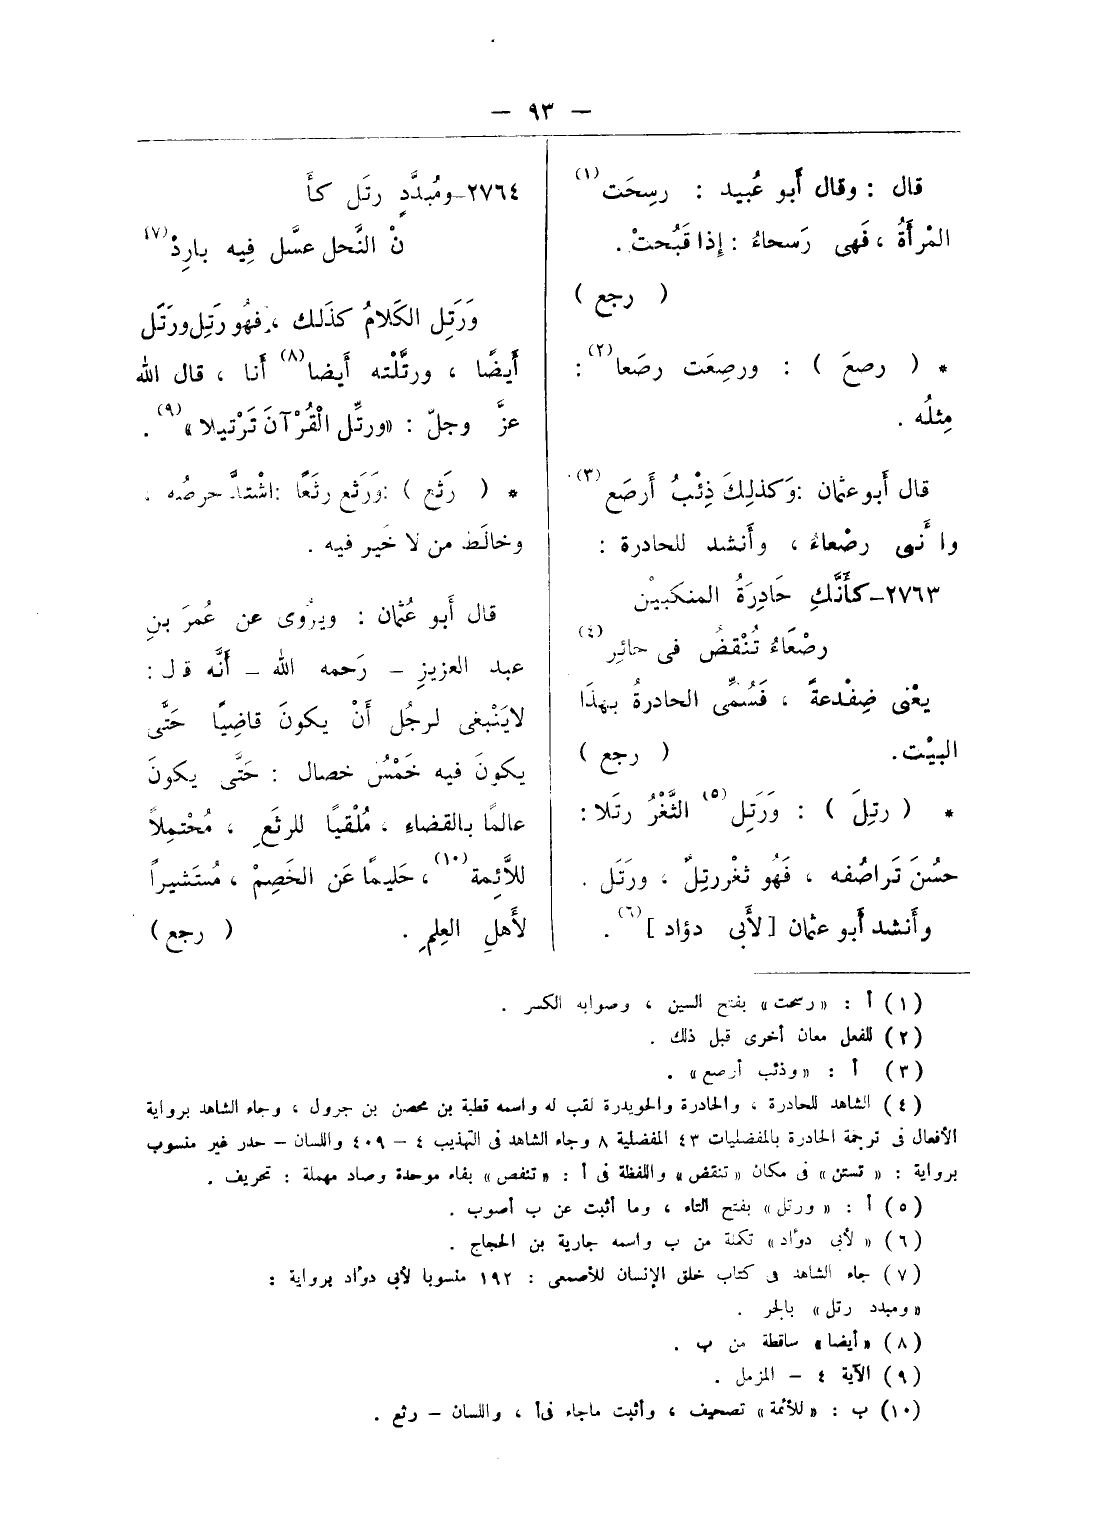 — ٩٣ —
قال : وقال أَبو عُبيد : رسِحَت(١)
المْرأَةُ ، فَهى رَسحاءُ : إِذا قَبُحتْ .
( رجع )
* ( رصعَ ) : ورصِعَت رصَعا(٢) :
مِثلُه .
قال أَبو عثمان : وَكذلِكَ ذِئْبُ أَرصَع(٣)
وأُنثى رصْعاءُ ، وأَنشد للحادرة :
٢٧٦٣ــ كأَنَّكِ حَادِرَةُ المنكبيْن
رصْعَاءُ تُنْقضُ فى حائِر(٤)
يعْنى ضِفْدعةً ، فَسُمِّى الحادرةُ بهذَا
البيْت . ( رجع )
* ( رتِلَ ) : وَرَتِل(٥) الثَّغْرُ رتَلا :
حسُنَ تَراصُفه ، فَهُو ثغْررتِلٌ ، ورَتَل .
وأَنشد أَبو عثمان [ لأَبى دؤاد ](٦) .
٢٧٦٤ــ ومُبدَّدٍ رتَل كأَ
نْ النَّحل عسَّل فِيه بارِدْ(٧)
وَرَتِل الكَلامُ كذَلك ، فهُو رَتِل ورَتَل
أَيضًا ، ورتَّلْته أَيضا(٨) أَنا ، قال الله
عزَّ وجلّ : «ورتِّل الْقُرْآنَ تَرْتيلا»(٩) .
* ( رَثع ) : وَرَثع رثَعًا : اشْتدَّ حرصُه ،
وخالَط من لا خَير فيه .
قال أَبو عُثمان : ويرْوى عن عُمرَ بنِ
عبد العزيزِ – رَحمه الله – أَنَّه قال :
لايَنْبغى لرجُل أَنْ يكونَ قاضِيًا حَتَّى
يكونَ فيه خَمْسُ خصال : حَتَّى يكونَ
عالمًا بالقضاءِ ، مُلْقيًا للرثَعِ ، مُحْتمِلاً
للأَّئِمة(١٠) ، حَليمًا عَن الخَصِمْ ، مُستَشيراً
لأَهلِ العِلمِ . ( رجع )
(١) أ : «رسحت» بفتح السين ، وصوابه الكسر .
(٢) للفعل معان أخرى قبل ذلك .
(٣) أ : «وذئب أرصع» .
(٤) الشاهد للحادرة ، والحادرة والحويدرة لقب له واسمه قطبة بن محصن بن جرول ، وجاء الشاهد برواية
الأفعال فى ترجمة الحادرة بالمفضليات ٤٣ المفضلية ٨ وجاء الشاهد فى التهذيب ٤ – ٤٠٩ واللسان – حدر غير منسوب
برواية : «تستن» فى مكان «تنقض» واللفظة فى أ : «تنفص» بفاء موحدة وصاد مهملة : تحريف .
(٥) أ : «ورتل» بفتح التاء ، وما أثبت عن ب أصوب .
(٦) «لأبى دؤاد» تكملة من ب واسمه جارية بن الحجاج .
(٧) جاء الشاهد فى كتاب خلق الإنسان للأصمعى : ١٩٢ منسوبا لأبى دؤاد برواية :
«ومبدد رتل» بالجر .
(٨) «أيضا» ساقطة من ب .
(٩) الآية ٤ – المزمل .
(١٠) ب : «للأئمة» تصحيف ، وأثبت ماجاء فىأ ، واللسان – رثع .